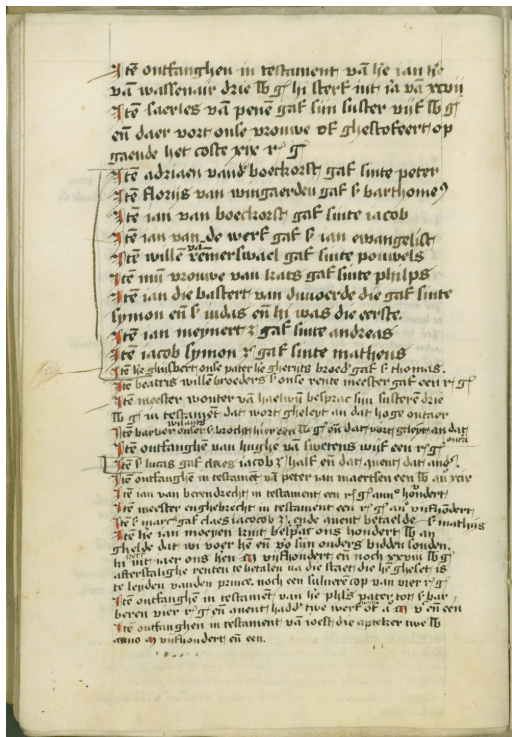 Itē ontfanghen in testament vā hē ian hē
vā wassenair drie lb g hi sterf int ia vā xcvii
Itē saerles vā penē gaf sijn suster vijf lb g
eñ daer vort onse vrouwe of ghestofeert op
gaende het coste xix r g
Itē adriaen vand boeckorst gaf sinte peter
Itē florijs van wingaerden gaf s barthomeꝰ
Itē ian van boeckorst gaf sinte iacob
Itē ian van de werf gaf s ian ewangelist
Itē willē vā remerswael gaf sinte pouwels
Itē mijn vrouwe van kats gaf sinte philps
Itē ian die bastert van duuoerde die gaf sinte
symon eñ s iudas eñ hi was die eerste.
Itē ian meynert z gaf sinte andreas
Itē iacob symon z gaf sinte matheus
Itē hē ghijsbert onse pater hē gherijts broed gaf s thomas.
Itē beatris willē broeders s onse rente meester gaf een r g
Itē meester wouter vā haelwijn besprac sijn susterē drie
lb g in testamēt dat wort gheleyt an dat hoge outaer
Itē barber s brocht hier een lb g eñ dat vort gheleyt an dat
outa
Itē ontfanghē van hughe vā swetens wijf een r g
Itē s lucas gaf claes iacob z half eñ dat auent dat and.
Itē ontfanghē in testamēt vā peter ian maertsen een lb
Itē ian van berendrecht in testament een r g anno hondert
Itē meester enghebrecht in testament een r g anno vijfhōdert
Itē s marc gaf claes iacob z. ende auent betaelde s mathijs
Itē hē ian moeyen kint belpar ons hondert lb an
ghelde dat wi voer hē eñ vo sijn ouders bidden souden.
hi int iaer ons hen m vijfhondert eñ noch xxviii lb g
afterstalighe renten te betalen na die staet die hē ghelet is
te leyden vanden prince. noch een suluere cop van vier r g
Itē ontfanghē in testamēt van hē phls pater tot s bar
beren vier r g eñ auent hadd twe werf of a m v eñ een
Itē ontfanghen in testament vā ioest die apteker twe lb
anno m vijfhondert eñ een.